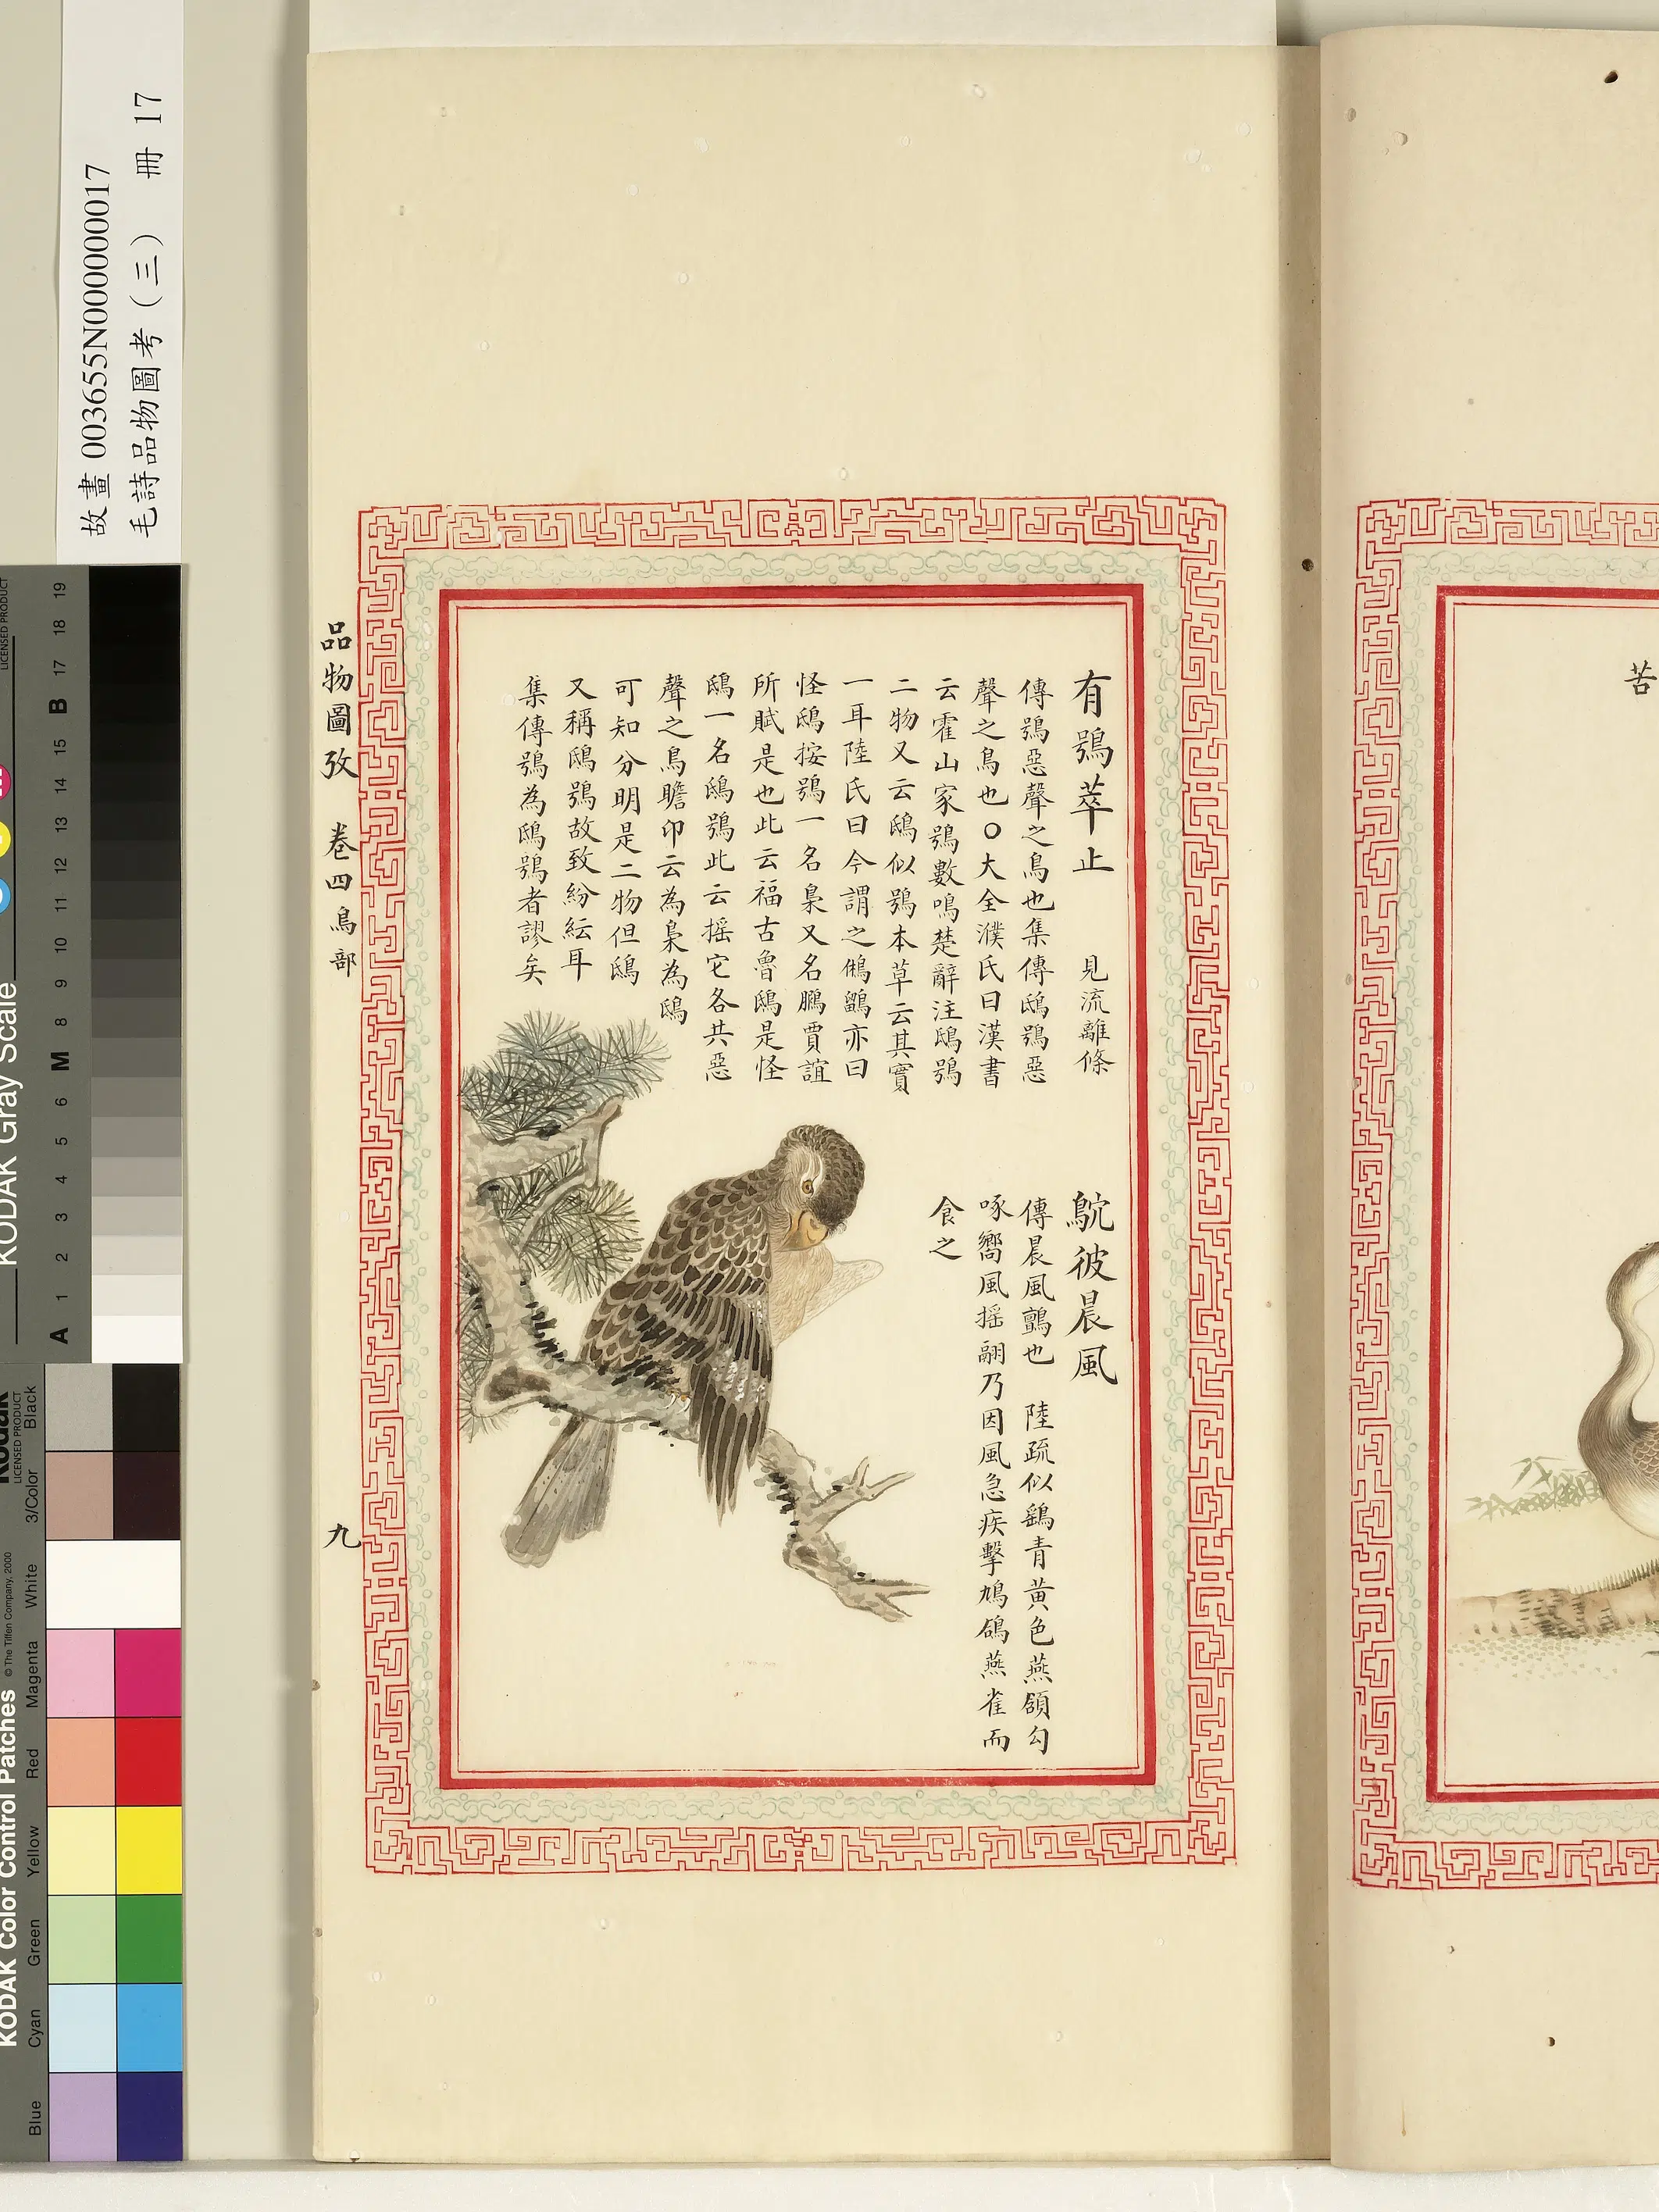 故畫 003655N000000017
毛詩品物圖考（三） 冊 17
有鴞萃止 見流離條
傳鴞惡聲之鳥也集傳鴟鴞惡
聲之鳥也○大全濮氏曰漢書
云霍山家鴞數鳴楚辭注鴟鴞
二物又云鴟似鴞本草云其實
一耳陸氏曰今謂之鵂鶹亦曰
怪鴟按鴞一名梟又名鵩賈誼
所賦是也此云福古魯鴟是怪
鴟一名鴟鴞此云摇它各共惡
聲之鳥瞻卬云為梟為鴟
可知分明是二物但鴟
又稱鴟鴞故致紛紜耳
集傳鴞為鴟鴞者謬矣
鴥彼晨風
傳晨風鸇也 陸疏似鷂青黄色燕頷勾
啄嚮風摇翮乃因風急疾擊鳩鴿燕雀而
食之
品物圖攷 卷四鳥部
九
苦
KODAK Gray Scale
LICENSED PRODUCT
A 1 2 3 4 5 6 M 8 9 10 11 12 13 14 15 B 17 18 19
KODAK Color Control Patches
© The Tiffen Company, 2000
Kodak
LICENSED PRODUCT
Blue Cyan Green Yellow Red Magenta White 3/Color Black